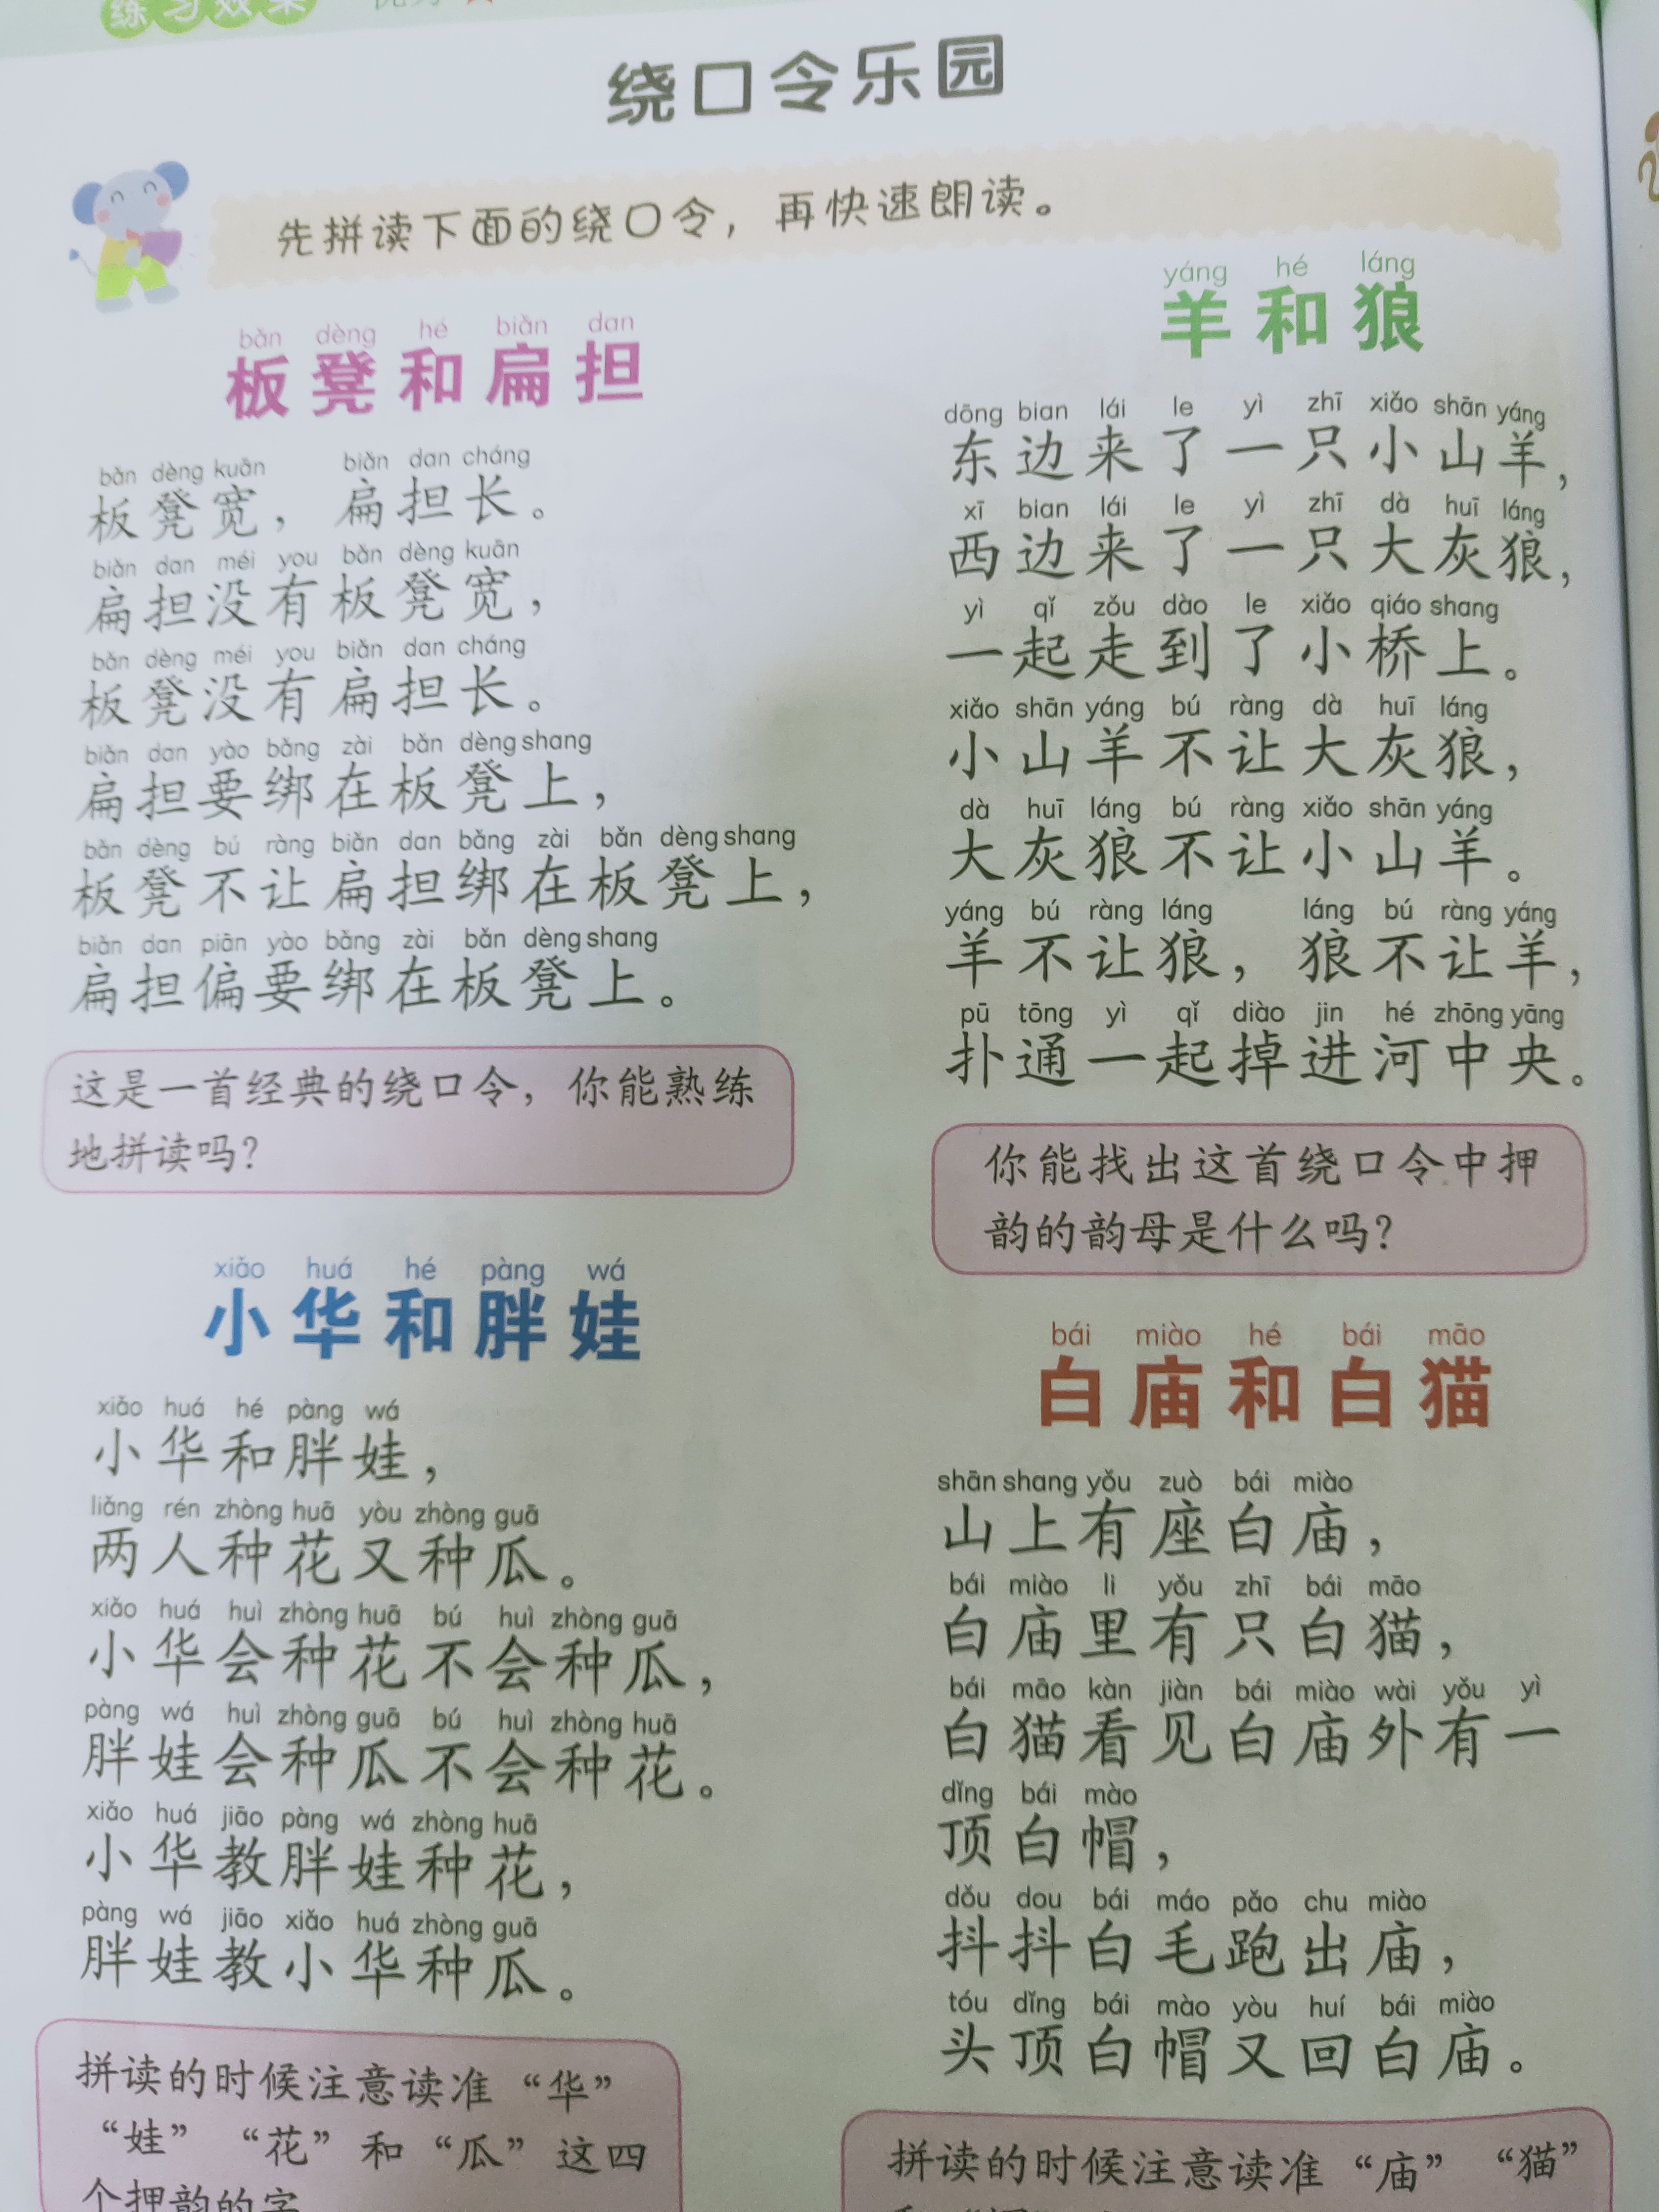 练习效果
绕口令乐园
先拼读下面的绕口令，再快速朗读。
bǎn dèng hé biǎn dan
板凳和扁担
bǎn dèng kuān biǎn dan cháng
板凳宽，扁担长。
biǎn dan méi you bǎn dèng kuān
扁担没有板凳宽，
bǎn dèng méi you biǎn dan cháng
板凳没有扁担长。
biǎn dan yào bǎng zài bǎn dèng shang
扁担要绑在板凳上，
bǎn dèng bú ràng biǎn dan bǎng zài bǎn dèng shang
板凳不让扁担绑在板凳上，
biǎn dan piān yào bǎng zài bǎn dèng shang
扁担偏要绑在板凳上。
这是一首经典的绕口令，你能熟练
地拼读吗？
xiǎo huá hé pàng wá
小华和胖娃
xiǎo huá hé pàng wá
小华和胖娃，
liǎng rén zhòng huā yòu zhòng guā
两人种花又种瓜。
xiǎo huá huì zhòng huā bú huì zhòng guā
小华会种花不会种瓜，
pàng wá huì zhòng guā bú huì zhòng huā
胖娃会种瓜不会种花。
xiǎo huá jiāo pàng wá zhòng huā
小华教胖娃种花，
pàng wá jiāo xiǎo huá zhòng guā
胖娃教小华种瓜。
拼读的时候注意读准“华”
“娃”“花”和“瓜”这四
个押韵的字
yáng hé láng
羊和狼
dōng bian lái le yì zhī xiǎo shān yáng
东边来了一只小山羊，
xī bian lái le yì zhī dà huī láng
西边来了一只大灰狼，
yì qǐ zǒu dào le xiǎo qiáo shang
一起走到了小桥上。
xiǎo shān yáng bú ràng dà huī láng
小山羊不让大灰狼，
dà huī láng bú ràng xiǎo shān yáng
大灰狼不让小山羊。
yáng bú ràng láng láng bú ràng yáng
羊不让狼，狼不让羊，
pū tōng yì qǐ diào jin hé zhōng yāng
扑通一起掉进河中央。
你能找出这首绕口令中押
韵的韵母是什么吗？
bái miào hé bái māo
白庙和白猫
shān shang yǒu zuò bái miào
山上有座白庙，
bái miào li yǒu zhī bái māo
白庙里有只白猫，
bái māo kàn jiàn bái miào wài yǒu yì
白猫看见白庙外有一
dǐng bái mào
顶白帽，
dǒu dou bái máo pǎo chu miào
抖抖白毛跑出庙，
tóu dǐng bái mào yòu huí bái miào
头顶白帽又回白庙。
拼读的时候注意读准“庙”“猫”